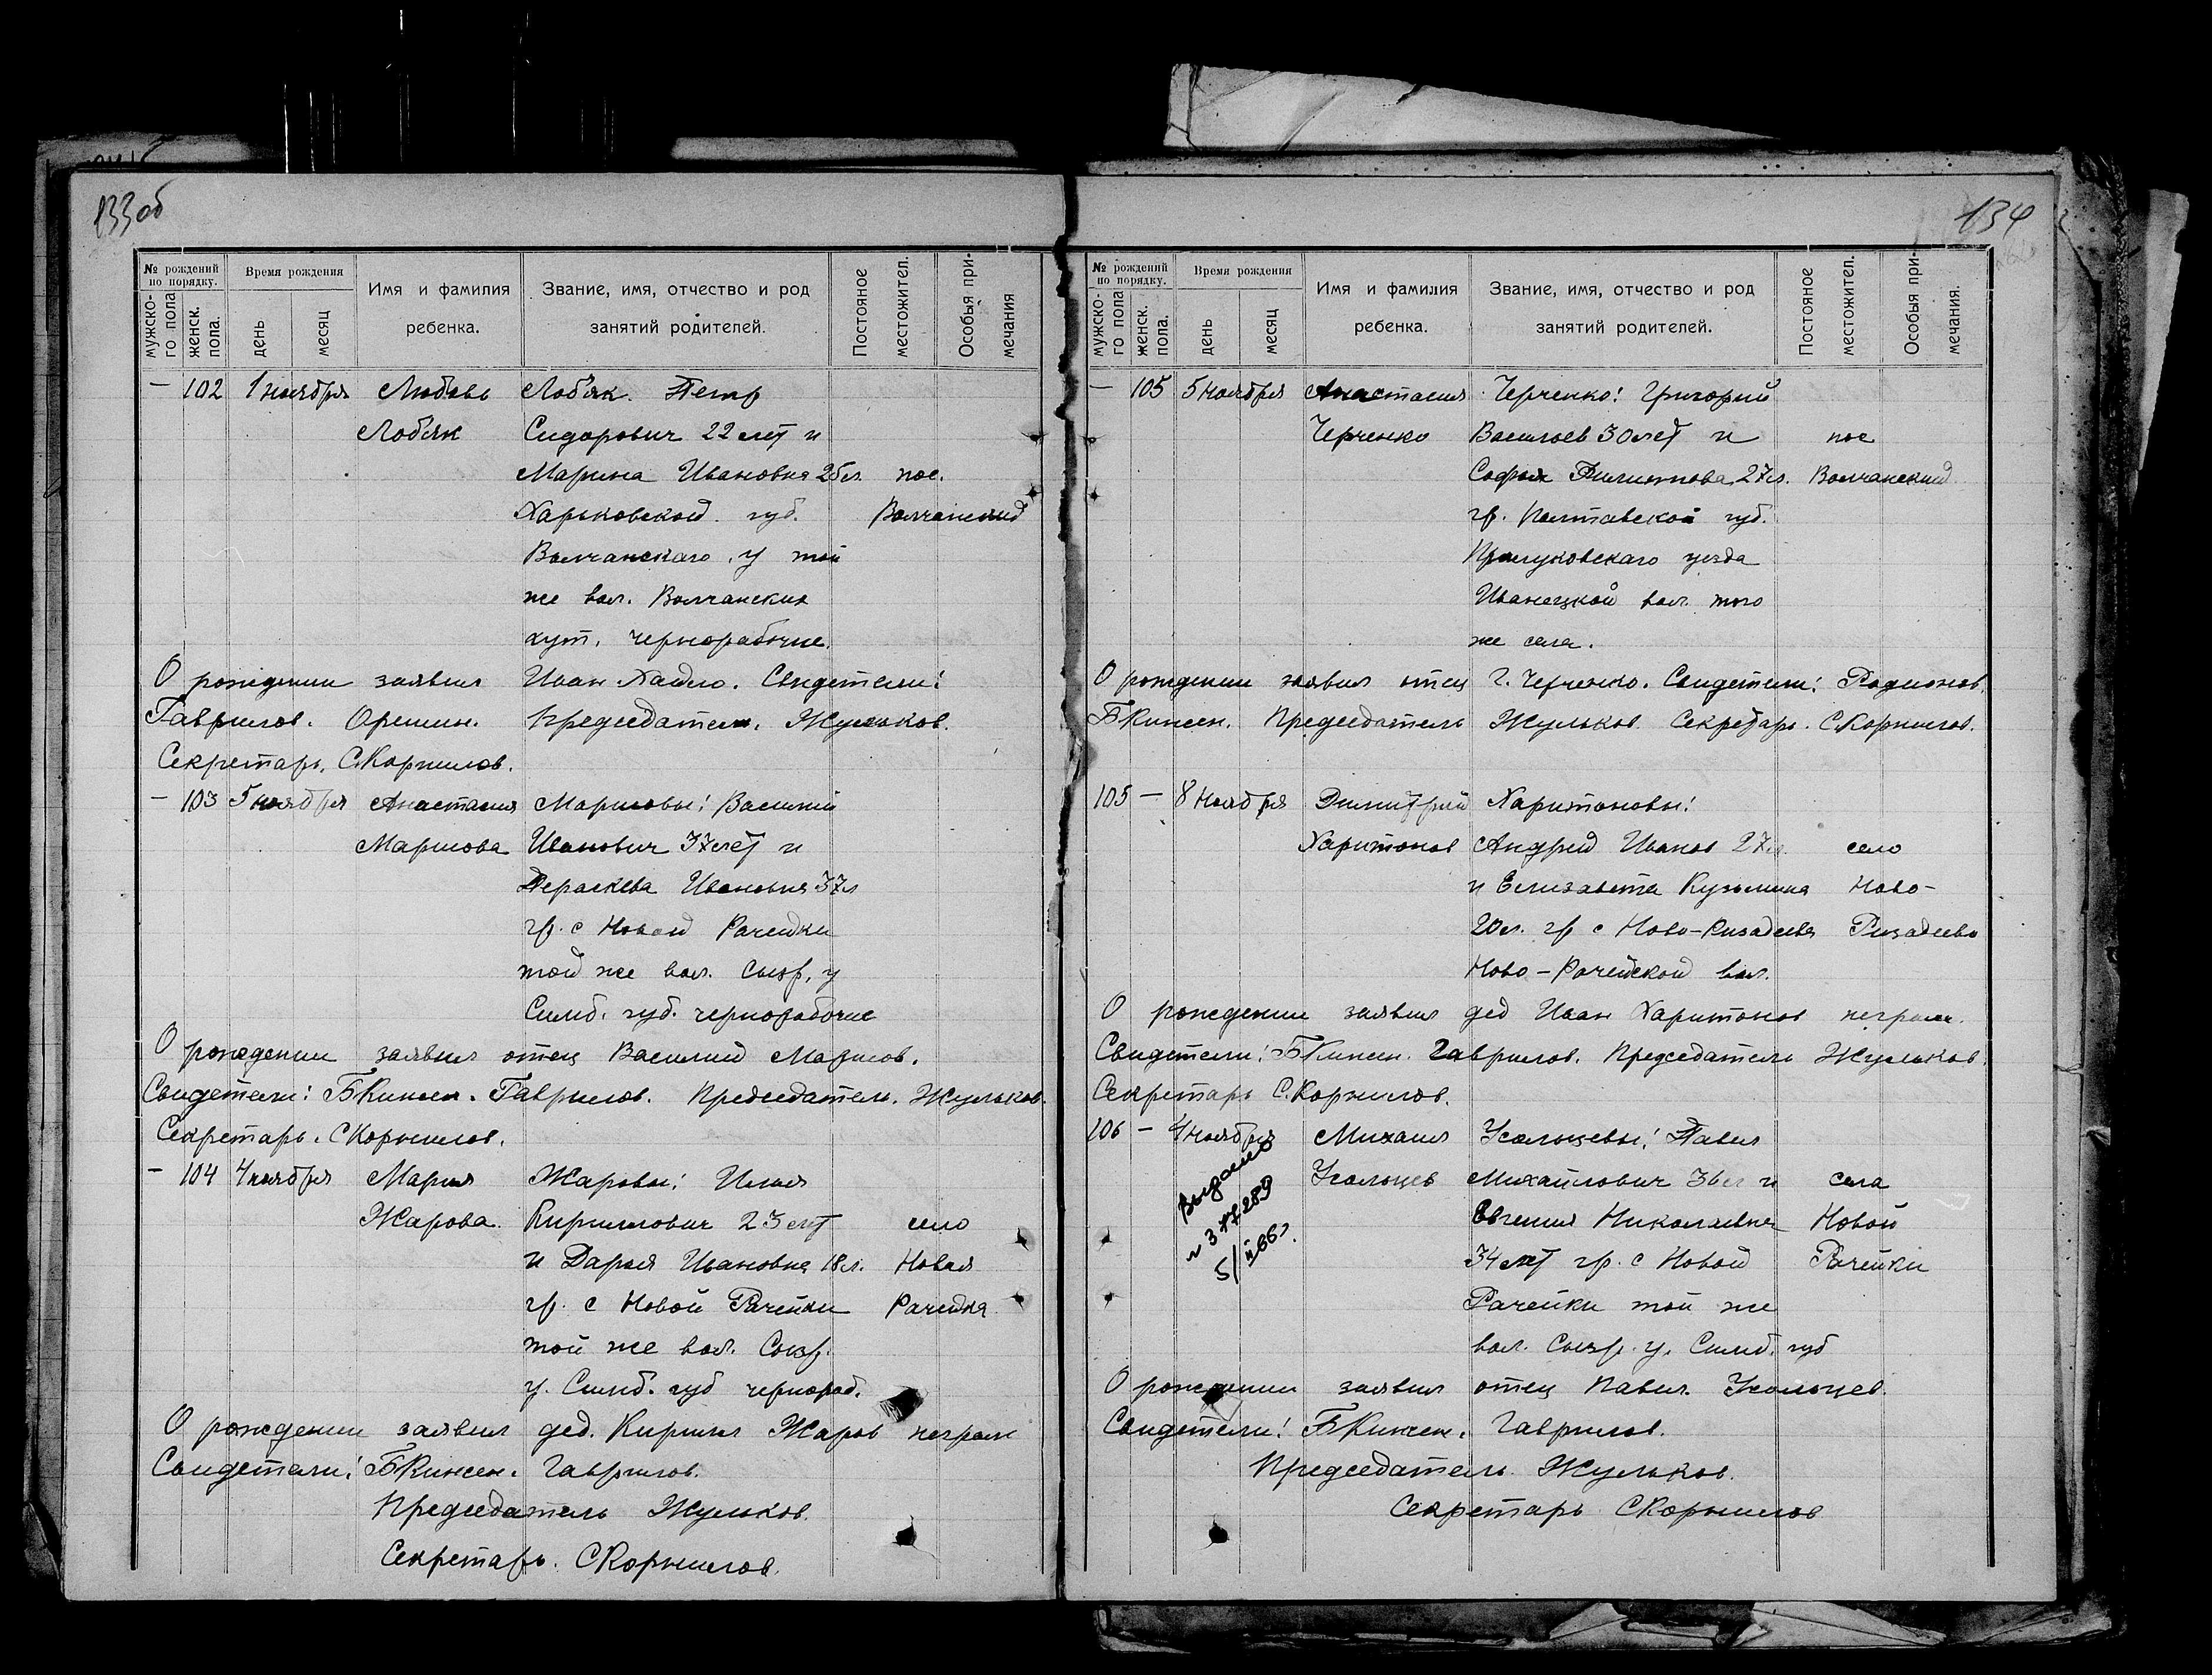 133об
№ рождений по порядку.
Время рождения
Имя и фамилия ребенка.
Звание, имя, отчество и род занятий родителей.
Постоянное местожител.
Особыя примечания
мужского пола
женск. пола.
день
месяц
— 102 1 ноября Любовь Лобяк. Петр
Лобяк Сидорович 22 лет и
Марина Ивановна 25 л. пос.
Харьковской губ. Волчанский
Волчанскаго у той
же вол. Волчанских
хут. чернорабочие.
О рождении заявил Иван Свидетели:
Гаврилов. Орешин. Председатель. Жульков.
Секретарь. С.Корнилов.
— 103 5 ноября Анастасия Маришовы: Василий
Маришова Иванович 37 лет и
Пераскева Ивановна 37 л
гр. с Новой Рачейки
той же вол. Сызр. у
Симб. губ. чернорабочие
О рождении заявил отец Василий
Свидетели: Гаврилов. Председатель. Жульков.
Секретарь. С Корнилов.
— 104 4 ноября Мария Жаровы: Илья
Жарова. Кириллович 23 лет село
и Дарья Ивановна 18 л. Новая
гр. с Новой Рачейки Рачейка
той же вол. Сызр.
у. Симб. губ чернораб.
О рождении заявил дед. Кирилл Жаров неграм
Свидетели: Гаврилов.
Председатель Жульков.
Секретарь. С Корнилов.
134
№ рождений по порядку.
Время рождения
Имя и фамилия ребенка.
Звание, имя, отчество и род занятий родителей.
Постояное местожител.
Особыя примечания.
мужского пола
женск. пола.
день
месяц
— 105 5 ноября Анастасия Черченко: Григорий
Черченко Васильев 30 лет и пос
Софья Филиппова 27 л. Волчанский
гр. Полтавской губ.
Прилуковскаго уезда
Иванецкой вол. того
же села.
О рождении заявил отец Г. Черченко. Свидетели: Родионов.
Председатель Жульков. Секретарь. С.Корнилов.
105 — 8 ноября Димитрий Харитоновы:
Харитонов Андрей Иванов 27 л. село
и Елизавета Кузьмина Ново-
20 л. гр с Ново-Ризадеева Ризадеево
Ново-Рачейской вол.
О рождении заявил дед Иван Харитонов неграм.
Свидетели: Гаврилов. Председатель Жульков.
Секретарь С.Корнилов.
106 — 4 ноября Михаил Усольцевы: Павел
Усольцев Михайлович 36 л и села
Евгения Николаевна Новой
34 лет гр. с Новой Рачейки
Рачейки той же
вол. Сызр. у. Симб. губ
Выдано
№ 377289
5/II 66 г.
О рождении заявил отец Павел Усольцев.
Свидетели: Гаврилов.
Председатель Жульков.
Секретарь С Корнилов